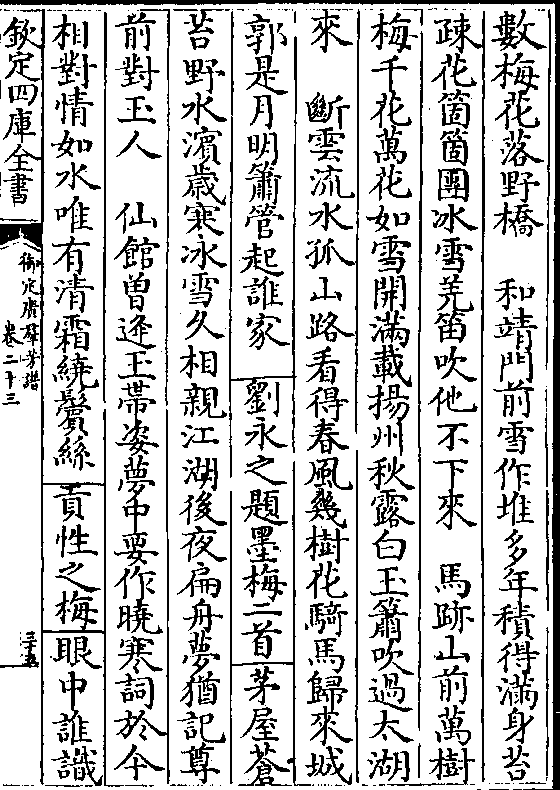 數梅花落野橋　和靖門前雪作堆多年積得滿身苔
疎花箇箇團冰雪羌笛吹他不下來　馬跡山前萬樹
梅千花萬花如雪開滿載揚州秋露白玉簫吹過太湖
來　斷雲流水孤山路看得春風幾樹花騎馬歸來城
郭是月明簫管起誰家　劉永之題墨梅二首　茅屋蒼
苔野水濱歳寒冰雪久相親江湖後夜扁舟夢猶記尊
前對玉人　仙館曾逢玉帶姿夢中要作曉寒詞於今
相對情如水唯有清霜繞鬢絲　貢性之梅　眼中誰識
欽定四庫全書
御定廣羣芳譜
卷二十三
三十五